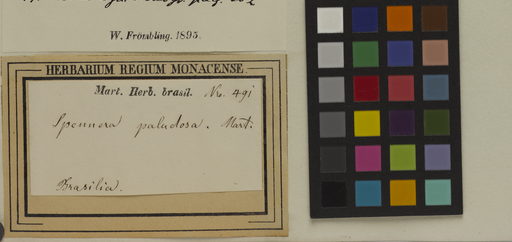 W. Frömbling. 1895.
HERBARIUM REGIUM MONACENSE.
Mart. Herb. brasil. Nro. 491
Spennera paludosa. Mart.
Brasilia.